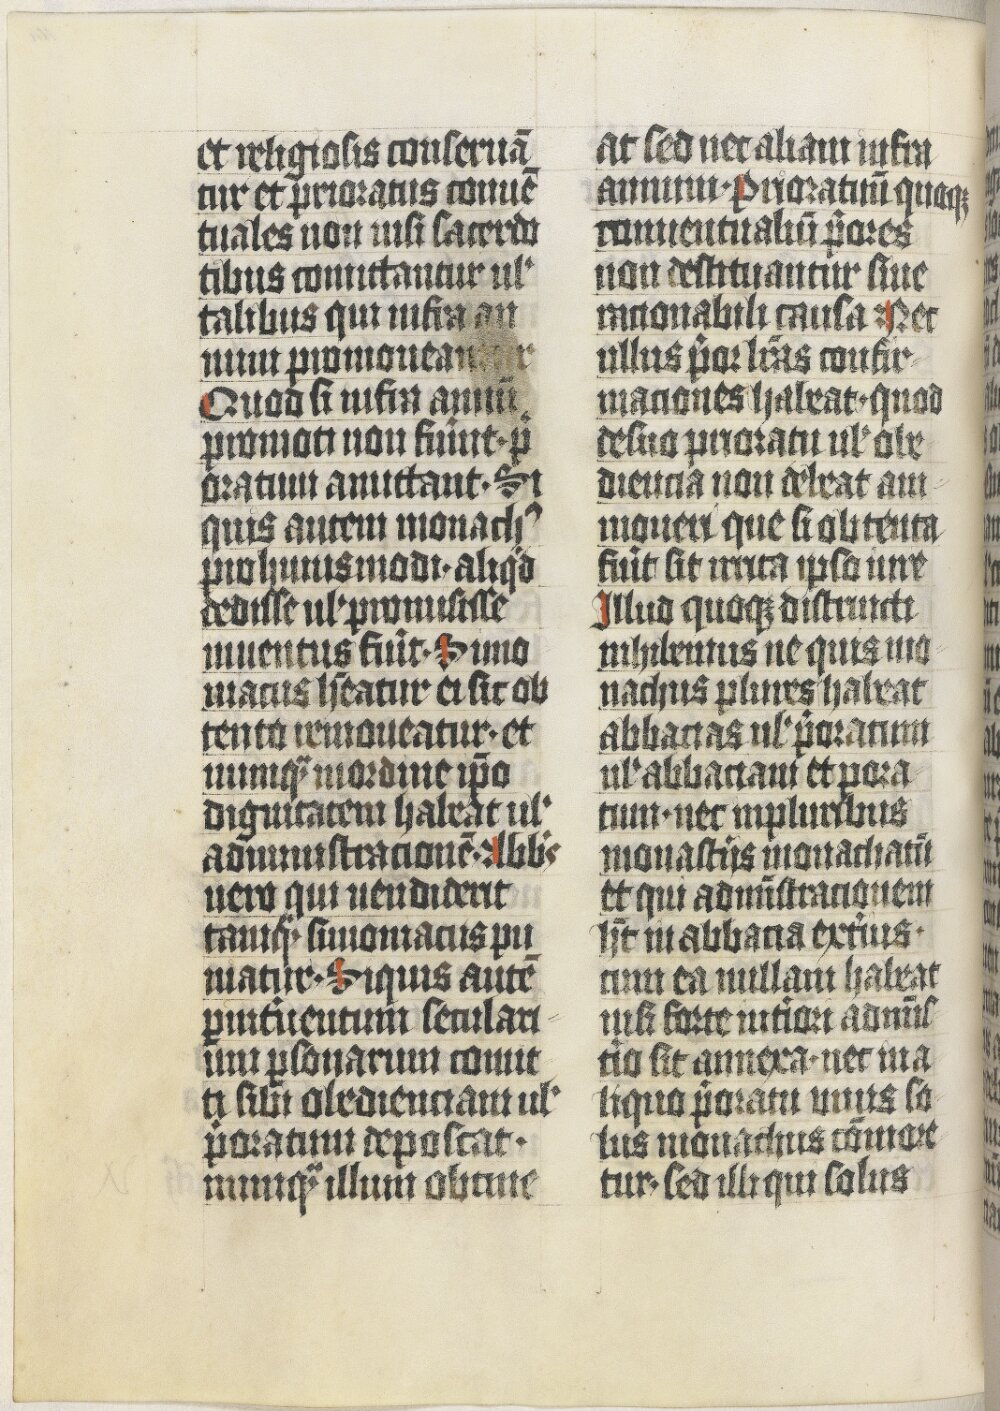 et religiosis conseruā
tur et prioratus conuē
tuales non nisi sacerdo
tibus comittantur ul'
talibus qui infra an
num promoueantur
Quod si infra annū
promoti non fūint· p̄
oratum amittant· Si
quis autem monachꝰ
pro huiusmodi· aliqd̄
dedisse ul' promisisse
inuentus fuīt· Simo
niacus hēatur ei sic ob
tento remoueatur· et
nunqͣ in ordine ip̄o
dignitatem habeat ul'
administracionē· Abb̄s
uero qui uendiderit
tanqͣ simoniacus pu
niatur· Siquis autē
pint̄uentum seculari
um ꝑsonarum comit
ti sibi obedienciam ul'
p̄oratum deposcat·
nunqͣ illum obtine
at sed nec aliam infra
annum· Prioratuū quoqꝫ
conuentualiū p̄ores
non destituantur sine
racionabili causa Nec
ullus p̄or lr̄as confir
maciones habeat· quod
de suo prioratu ul' obe
diencia non debeat am
moueri que si obtenta
fuīt sit irrita ipso iure
Illud quoqꝫ districti
inhibemus ne quis mo
nachus plures habeat
abbacias ul' p̄oratum
ul' abbaciam et p̄ora
tum· nec in pluribus
monast̄iis monachatū
et qui adminīstracionem
h̄t in abbacia ext̄ius·
cum ea nullam habeat
nisi forte int̄iori adminīs
tīo sit annexa· nec in a
liquo p̄oratu unus so
lus monachus cōmore
tur· sed illi qui solus